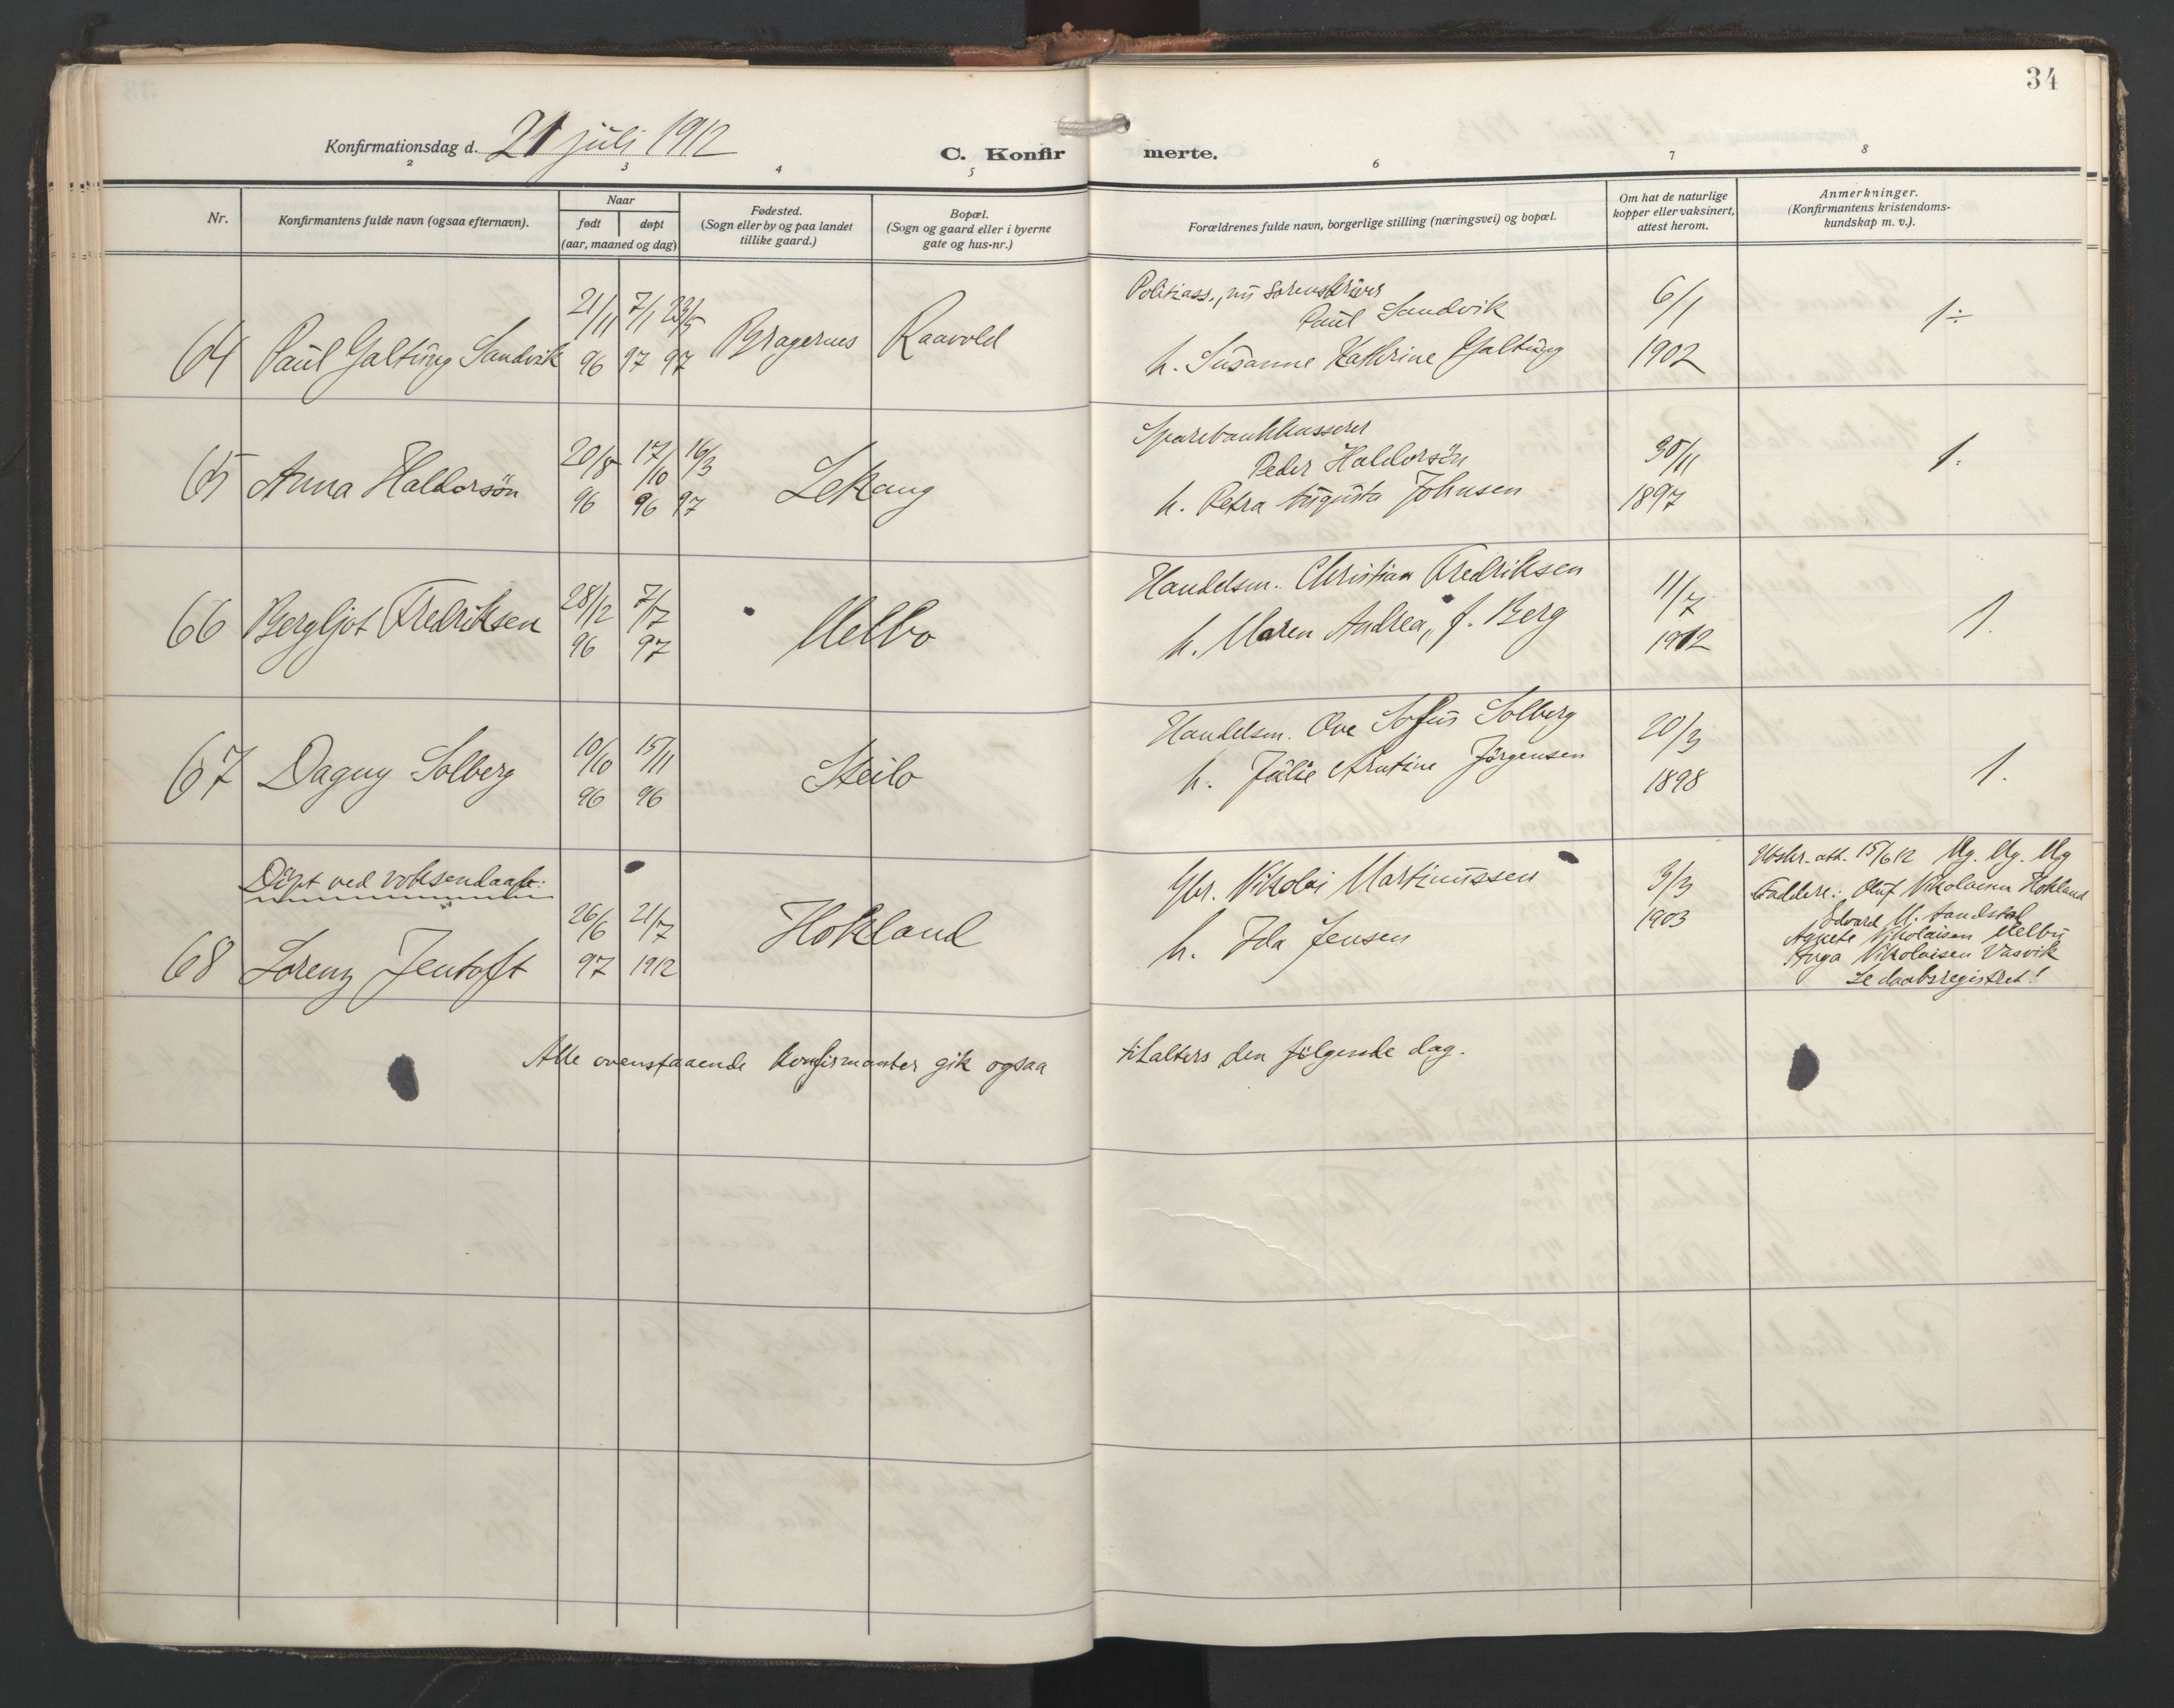 34
Konfirmationsdag d. 21 juli 1912
C. Konfirmerte.
2 3 4 5 6 7 8
Nr.
Konfirmantens fulde navn (ogsaa efternavn).
Naar
født døpt
(aar, maaned og dag)
Fødested.
(Sogn eller by og paa landet
tillike gaard.)
Bopæl.
(Sogn og gaard eller i byerne
gate og hus-nr.)
Forældrenes fulde navn, borgerlige stilling (næringsvei) og bopæl.
Om hat de naturlige
kopper eller vaksinert,
attest herom.
Anmerkninger.
(Konfirmantens kristendoms-
kundskap m. v.).
64 Paul Galtung Sandvik 21/11 96 7/1 97 23/5 97 Bragernes Raavold
Politiass., nu Sorenskriver
Paul Sandvik
h. Susanne Kathrine Galtung
6/1
1902
1÷
65 Anna Haldorsön 20/8 96 17/10 96 16/3 97 Lekang
Sparebankkasserer
Peder Haldorsön
h. Petra Augusta Johnsen
30/11
1897
1.
66 Bergljot Fredriksen 28/12 96 7/7 97 Melbo
Handelsm. Christian Fredriksen
h. Maren Andrea, f. Berg
11/7
1912
1.
67 Dagny Solberg 10/10 96 15/11 96 Steilo
Handelsm. Ove Sofus Solberg
h. Julie Arntine Jörgensen
20/3
1898
1.
Döpt ved voksendaab:
68 Lorenz Jentoft 26/6 97 21/7 1912 Hokland
Gbr. Nikolai Martinussen
h. Ida Jensen
3/3
1903
Utskr. att. 15/6 12 Mg. Mg. Mg
Faddere: Oluf Nikolaisen Hokland
Edvard M. Sandstal
Agnete Nikolaisen Melbu
Inga Nikolaisen Vasvik
Se daabsregistret!
Alle ovenstaaende konfirmanter gik ogsaa tilalters den følgende dag.